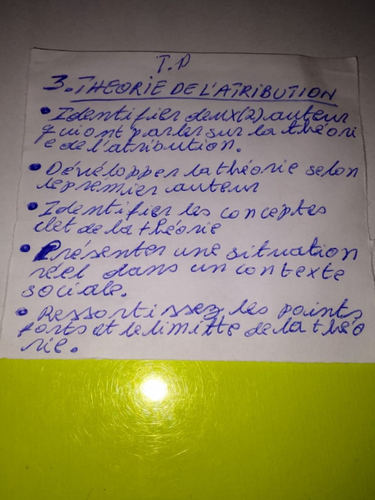 T.D
3. THEORIE DE L'ATRIBUTION
• Identifier deux(2) auteur
qui ont parler sur la théori
e de l'atribution.
• Dévélopper la théorie selon
le premier auteur
• Identifier les conceptes
clet de la théorie
• Présenter une situation
réel dans un contexte
sociale.
• Ressortissez les points
forts et le limitte de la théo
rie.